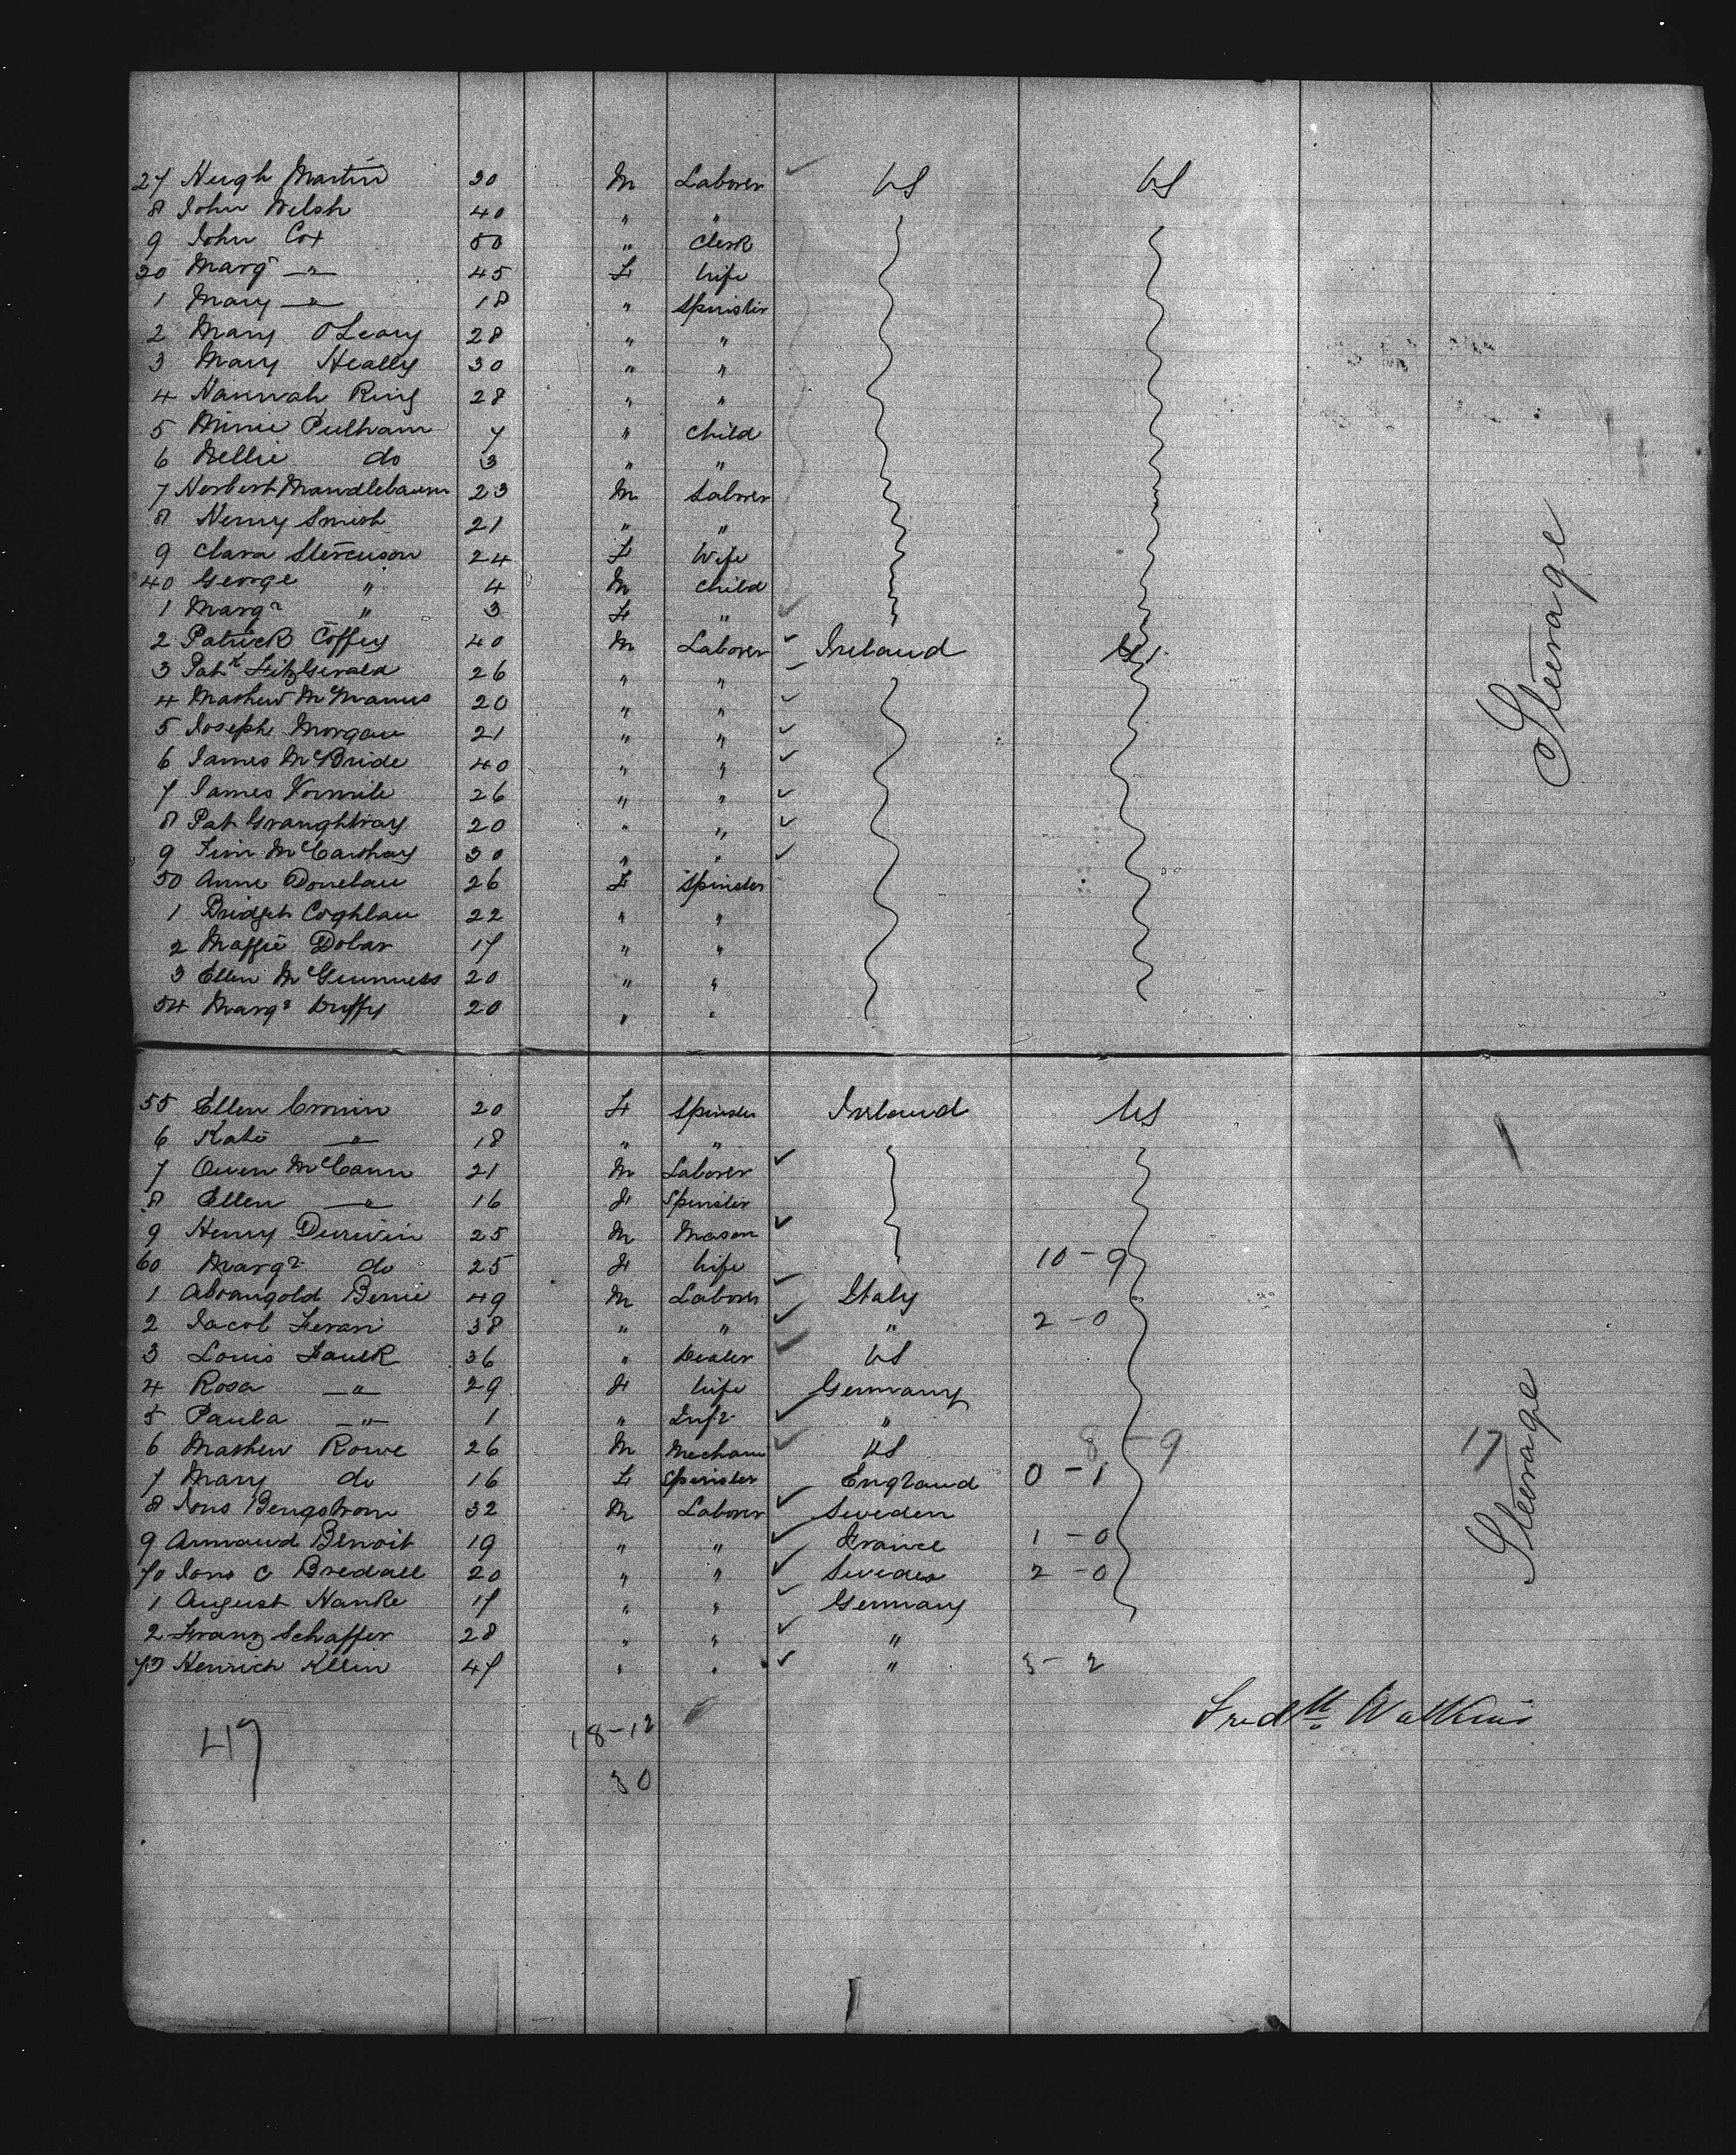 27 Hugh Martin 30 M Laborer ✓ US US
8 John Welsh 40 " "
9 John Cox 50 " Clerk
30 Marg —"— 45 F Wife
1 Mary —"— 18 " Spinster
2 Mary O'Leary 28 " "
3 Mary Heally 30 " "
4 Hannah Ring 28 " "
5 Minnie Pulham 7 " Child
6 Nellie do 3 " "
7 Herbert Mandlebaum 23 M Laborer
8 Henry Smith 21 " "
9 Clara Stevenson 24 F Wife
40 George " 4 M Child
1 Margt " 3 F " ✓
2 Patrick Coffey 40 M Laborer ✓ Ireland US
3 Patk FitzGerald 26 " " ✓
4 Mathew McManus 20 " " ✓
5 Joseph Morgan 21 " " ✓
6 James McBride 40 " " ✓
7 James 26 " " ✓
8 Pat 20 " " ✓
9 Tim McCarthay 30 " " ✓
50 Anne Donelan 26 F Spinster
1 Bridget Coghlan 22 " "
2 Maggie Dolan 17 " "
3 Ellen McGuinness 20 " "
54 Margt Duffy 20 " "
Steerage
55 Ellen Cronin 20 F Spinster Ireland US
6 Kate —"— 18 " "
7 Owen McCann 21 M Laborer ✓
8 Ellen —"— 16 F Spinster
9 Henry 25 M Mason ✓
60 Margt do 25 F Wife 10-9
1 Bernie 49 M Laborer ✓ Italy
2 Jacob Ferari 38 " " ✓ " 2-0
3 Louis Faulk 36 " Dealer ✓ US
4 Rosa —"— 29 F Wife Germany
5 Paula —"— 1 " Inft ✓ "
6 Mathew Rowe 26 M Mechanic ✓ US 8-9 17
7 Mary do 16 F Spinster England 0-1
8 Jons Bengstrom 32 M Laborer ✓ Sweden
9 Armand Benoit 19 " " ✓ France 1-0
70 Jons C Bredall 20 " " ✓ Sweden 2-0
1 August Hanke 17 " " ✓ Germany
2 Franz Schaffer 28 " " ✓ "
73 Henrich Klein 47 " " ✓ " 3-2
Steerage
Fredk Watkins
47 18-12
30